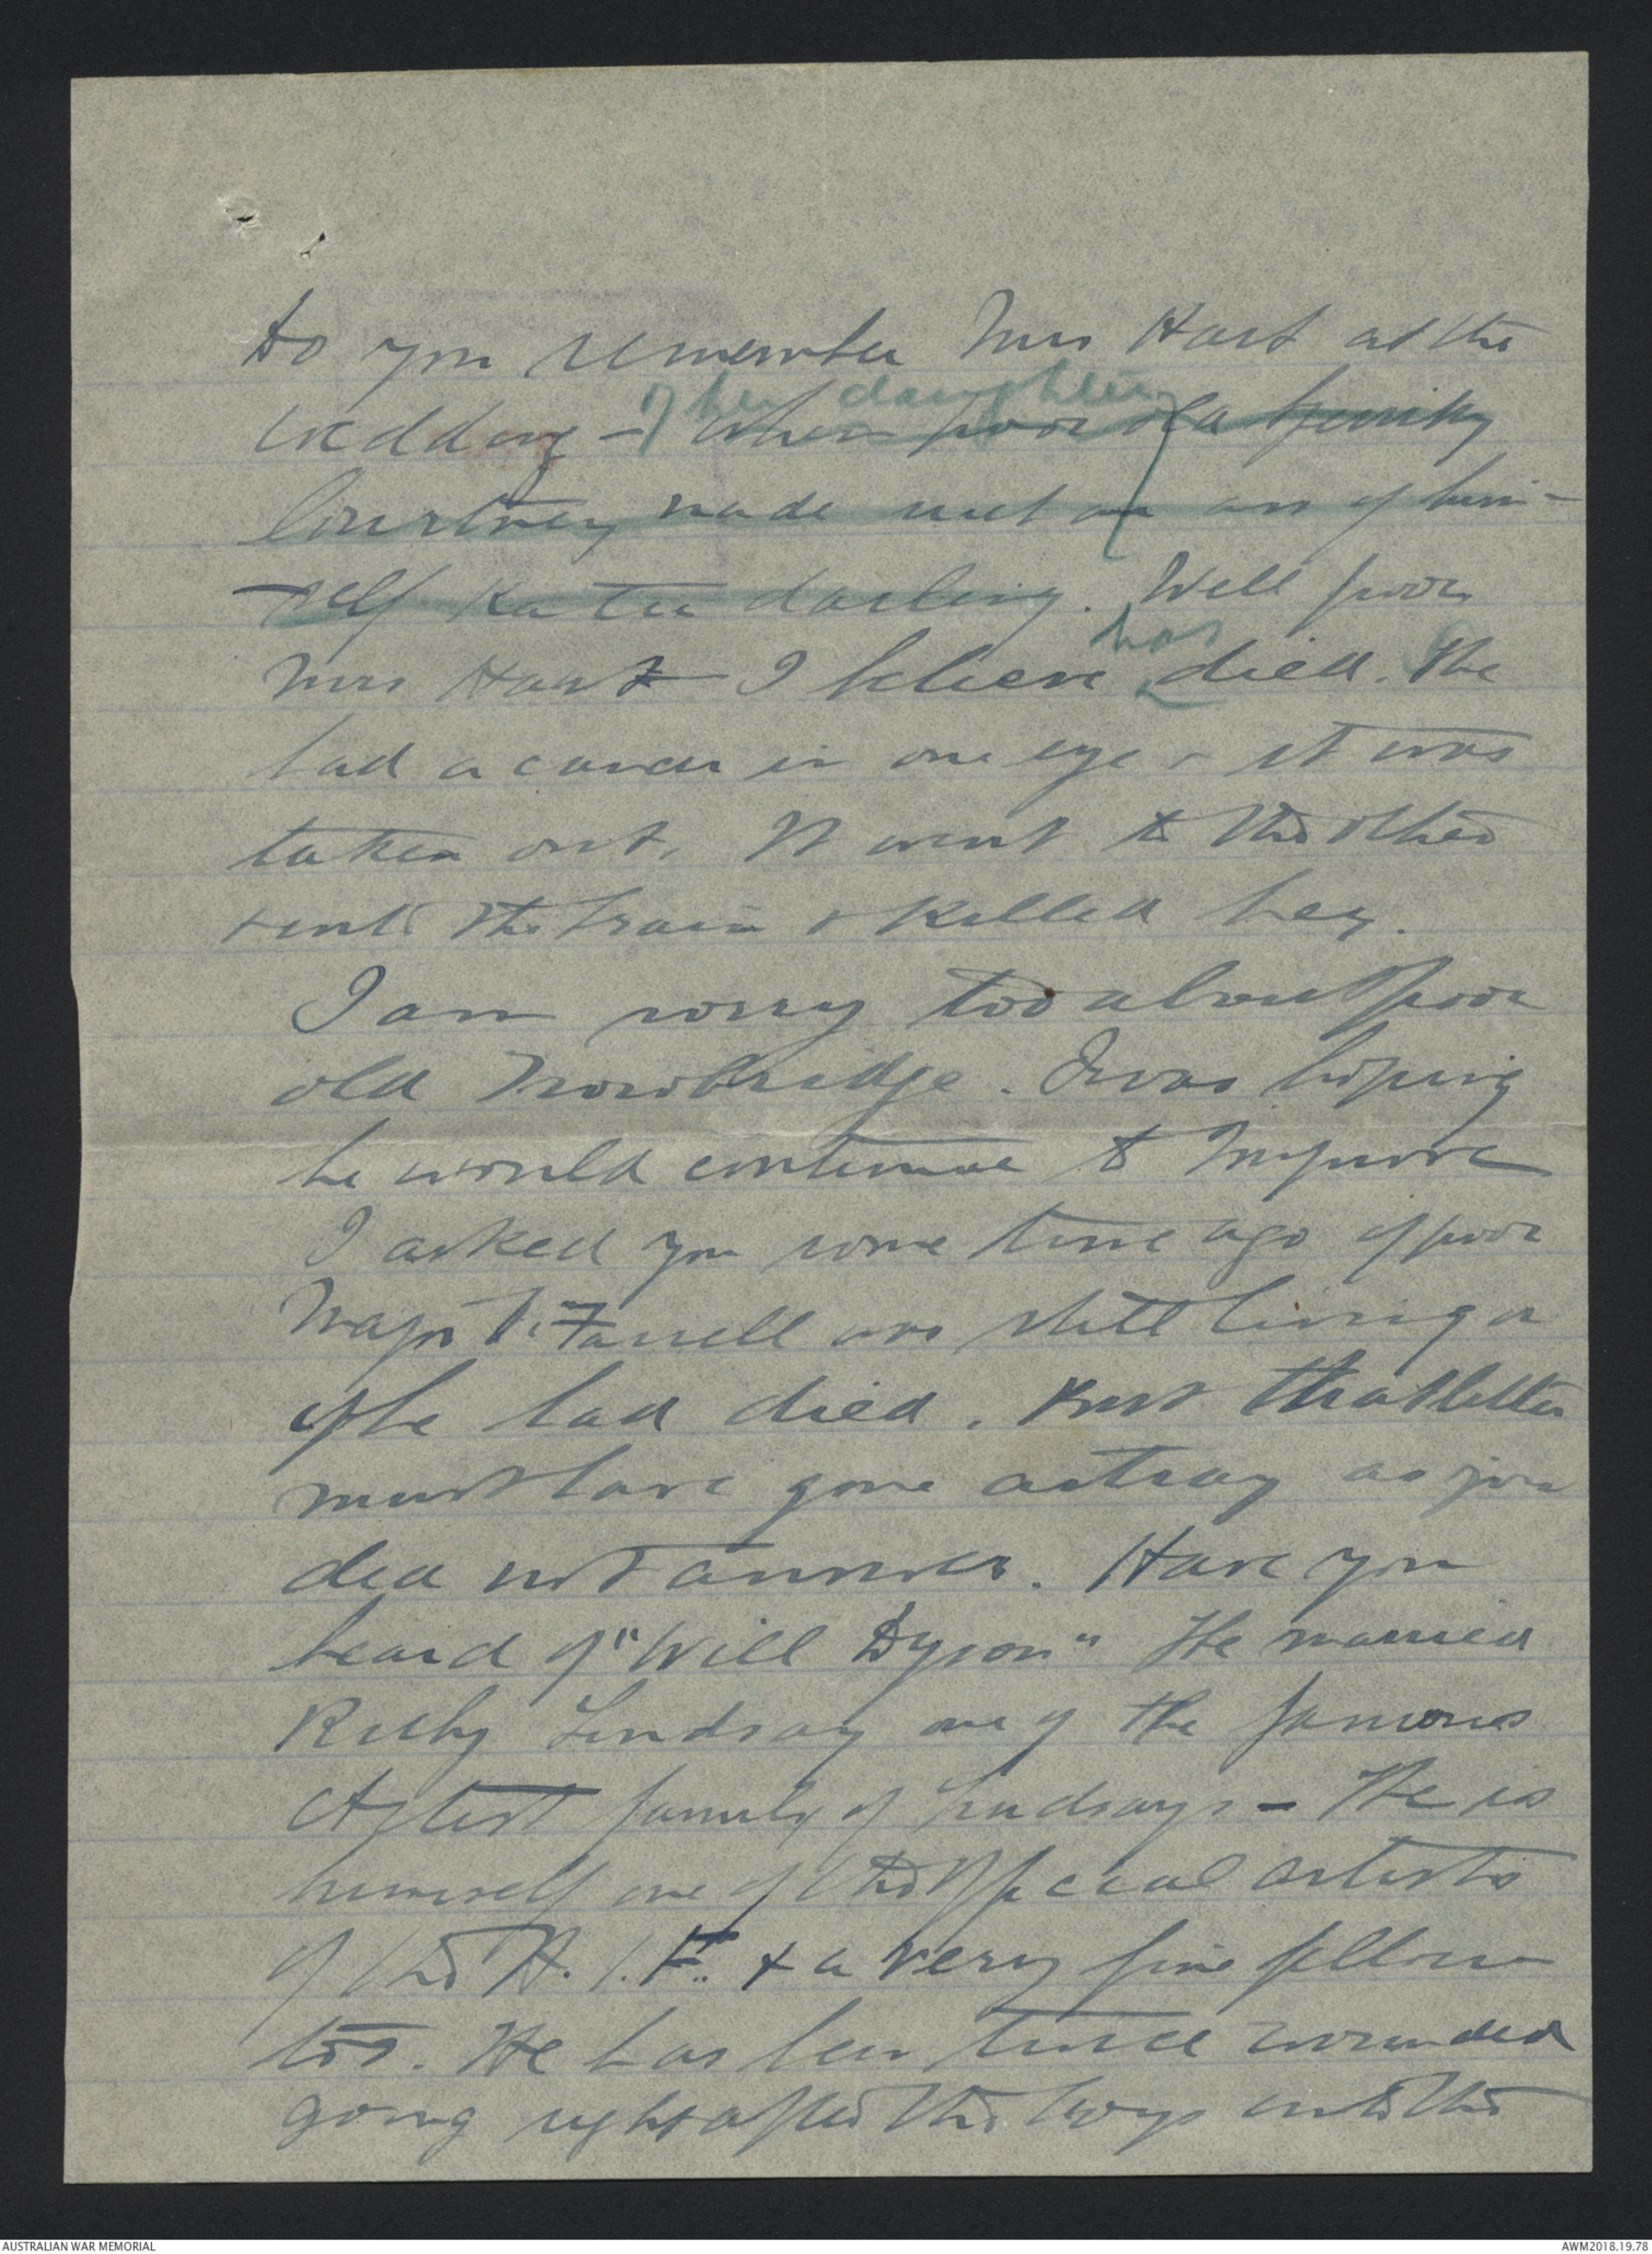 Do you remember Mrs Hart at the
wedding - of her daughter when poor old
Courtney made such an ass of him-
-self Katie darling. Well poor
Mrs Hart I believe has died. She
had a cancer in one eye & it was
taken out. It went to the other
& into the brain & killed her.
I am sorry too about poor
old Trowbridge. I was hoping
he would continue to improve
I asked you some time ago if poor
Major Farrell was still living or
if he had died. But that letter
must have gone astray as you
did not answer. Have you
heard of "Will Dyson" He married
Ruby Lindsay one of the famous
Artist family of Lindsays - He is
himself one of the official artists
of the A.I.F. & a very fine fellow
too. He has been twice wounded
going right after the boys into the
AUSTRALIAN WAR MEMORIAL
AWM2018.19.78